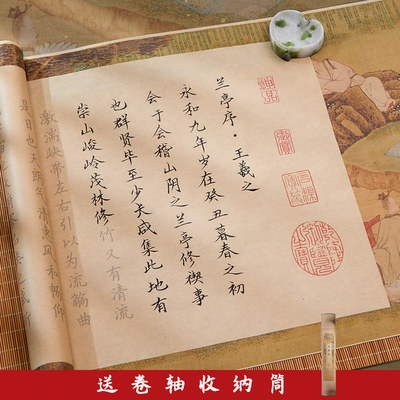 兰亭序·王羲之
永和九年岁在癸丑暮春之初
会于会稽山阴之兰亭修禊事
也群贤毕至少长咸集此地有
崇山峻岭茂林修竹又有清流
激湍映带左右引以为流觞曲
是日也天朗气清惠风和畅仰
送卷轴收纳筒